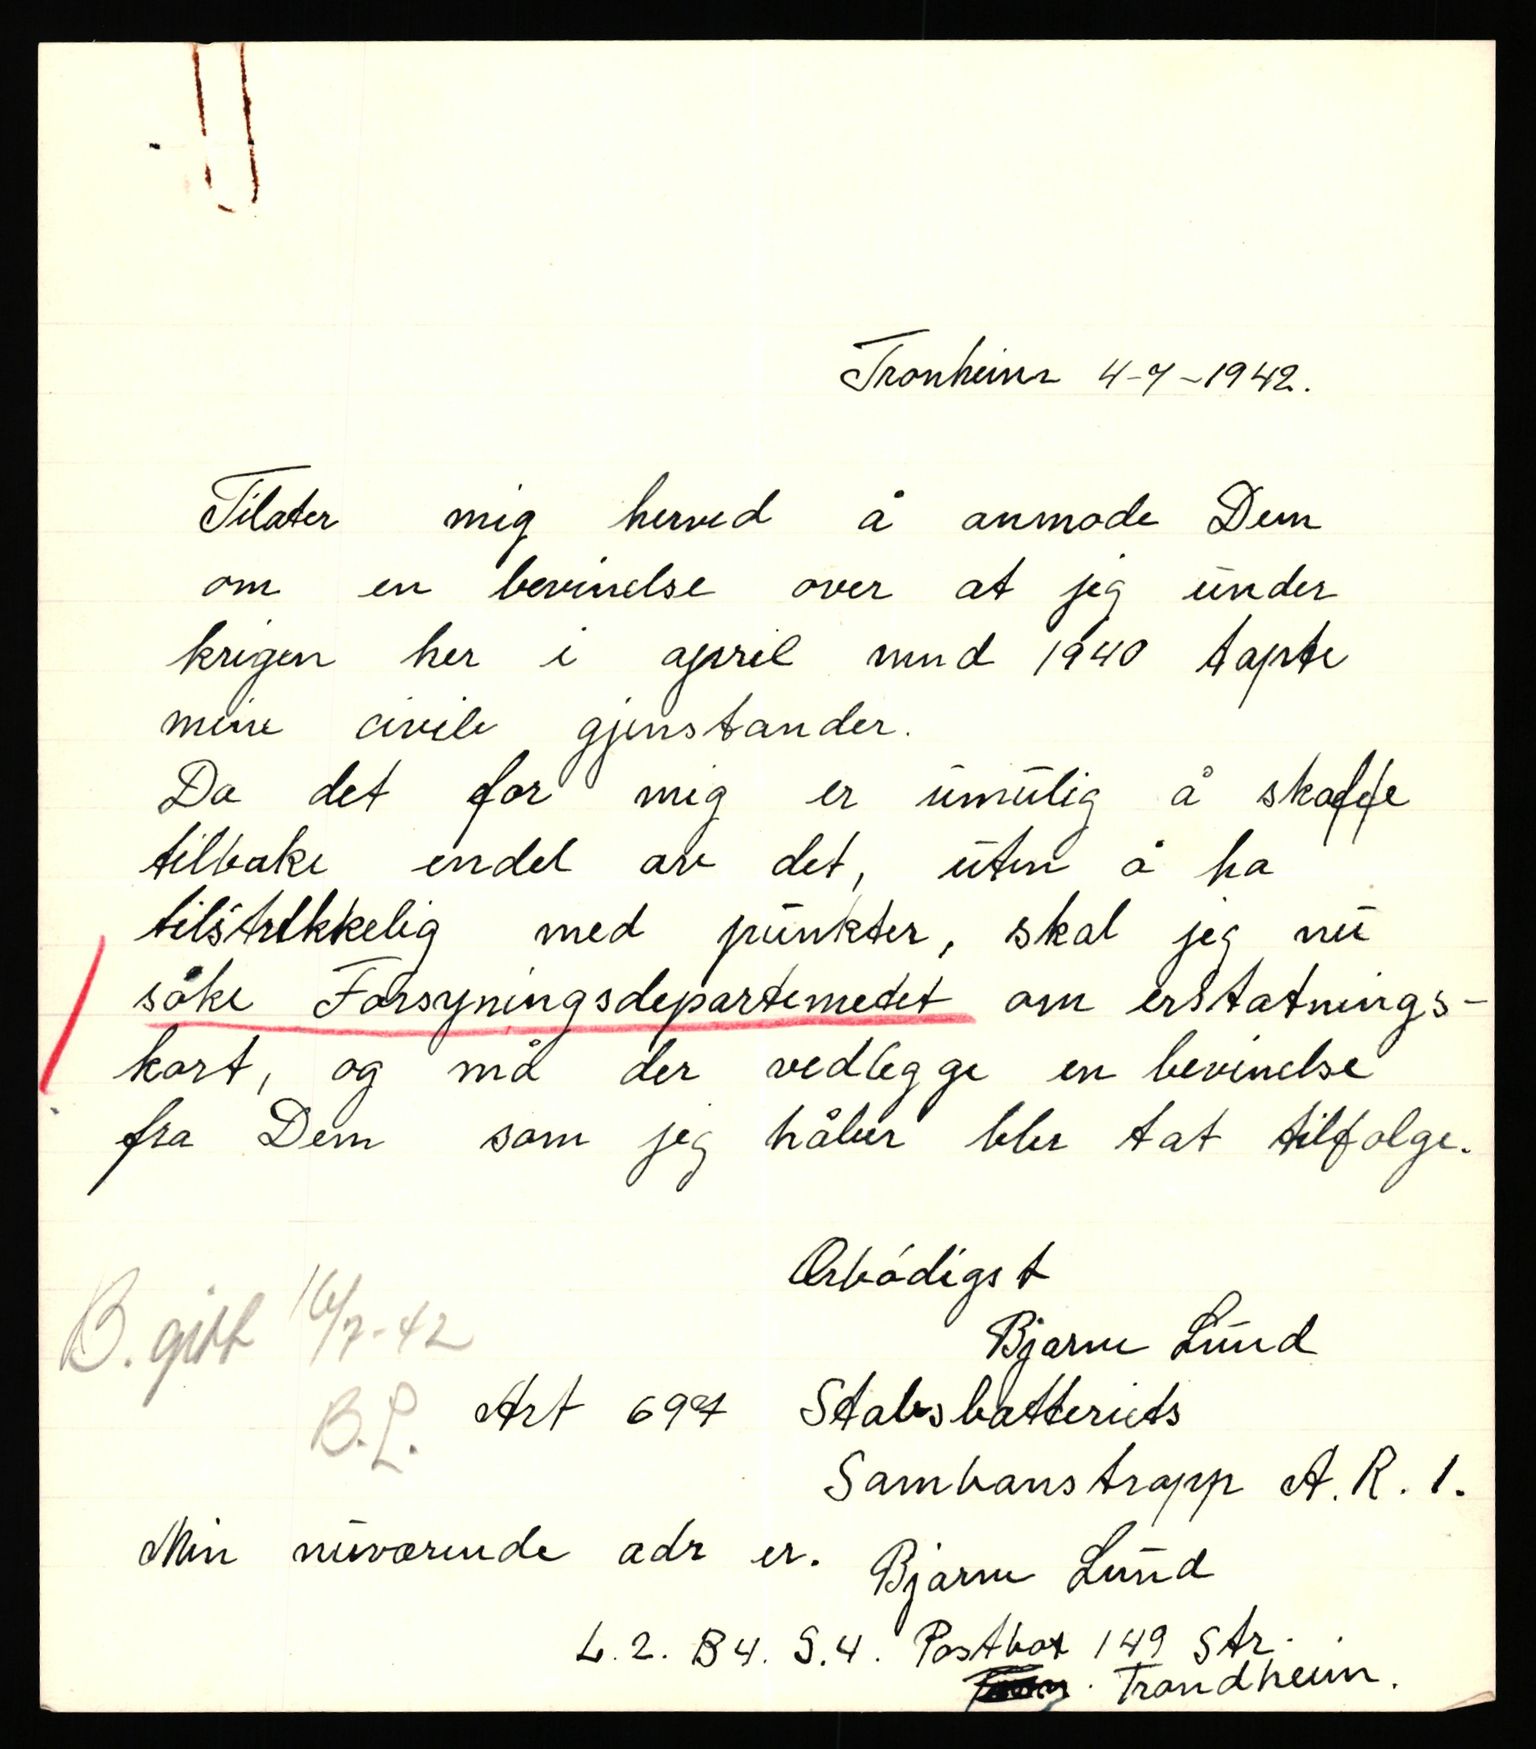 Tronheim 4-7-1942.
Tilater mig herved å anmode Dem
om en bevinelse over at jeg under
krigen her i april mnd 1940 tapte
mine civile gjenstander.
Da det for mig er umulig å skaffe
tilbake endel av det, uten å ha
tilstrekkelig med punkter, skal jeg nu
søke Forsyningsdepartemetet om erstatnings-
kort, og må der vedlegge en bevinelse
fra Dem som jeg håber blir tat tilfolge.
Ærbódigst
B. gitt 16/7-42
Bjarne Lund
B.L. Art 697 Stabsbatteriets
Sambanstropp A.R.1.
Min nuværende adr er. Bjarne Lund
L.2. B4. S.4. Postbox 149 Str.
Trondheim.